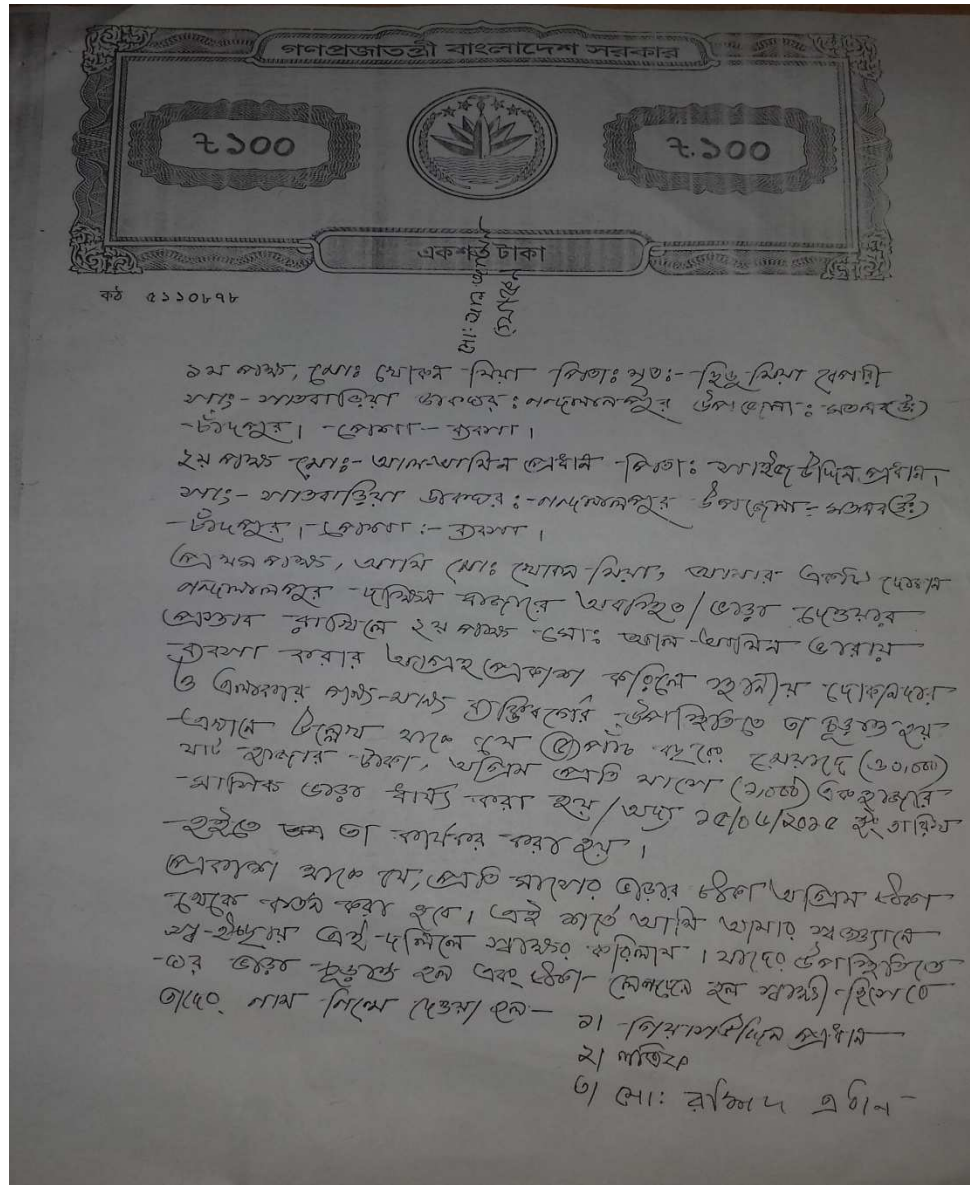 গণপ্রজাতন্ত্রী বাংলাদেশ সরকার
৳১০০
৳.১০০
একশত টাকা
কঠ ৫১১০৮৭৮
১ম পক্ষ, মোঃ খোকন মিয়া পিতাঃ মৃতঃ- মিয়া বেপারী
সাং- সাতবাড়িয়া ডাকঘর : নন্দলালপুর উপজেলা : মতলব (উঃ)
চাঁদপুর। পেশা - ব্যবসা।
২য় পক্ষ মোঃ- আল-আমিন প্রধান পিতাঃ উদ্দিন প্রধান,
সাং- সাতবাড়িয়া ডাকঘর :- নন্দলালপুর উপজেলা - মতলব (উঃ)
চাঁদপুর। পেশা :- ব্যবসা।
প্রথম পক্ষ, আমি মোঃ খোকন মিয়া, আমার একটি দোকান
নন্দলালপুর দক্ষিন বাজারে অবস্থিত / ভাড়া দেওয়ার
প্রস্তাব রাখিলে ২য় পক্ষ মোঃ আল-আমিন ভারায়
ব্যবসা করার আগ্রহ প্রকাশ করিলে স্থানীয় দোকানদার
ও এলাকার গন্য-মান্য ব্যক্তিবর্গের উপস্থিতিতে তা চূড়ান্ত হয়
এখানে উল্লেখ থাকে যে (৫) পাঁচ বছরের মেয়াদে (৬০,০০০)
ষাট হাজার টাকা, অগ্রিম প্রতি মাসে (১,০০০) এক হাজার
মাসিক ভাড়া ধার্য্য করা হয় / অদ্য ১৫/০৬/২০১৫ ইং তারিখ
হইতে তা কার্যকর করা হয়।
প্রকাশ থাকে যে, প্রতি মাসের ভাড়ার টাকা অগ্রিম টাকা
থেকে কর্তন করা হবে। এই শর্তে আমি আমার স্বজ্ঞানে
স্ব-ইচ্ছায় এই দলিলে স্বাক্ষর করিলাম। যাদের উপস্থিতিতে
ভাড়া চূড়ান্ত হল এবং টাকা লেনদেন হল স্বাক্ষী হিসেবে
তাদের নাম নিম্নে দেওয়া হল-
১। গিয়াসউদ্দিন প্রধান
২। লতিফ
৩। মোঃ রাশেদ